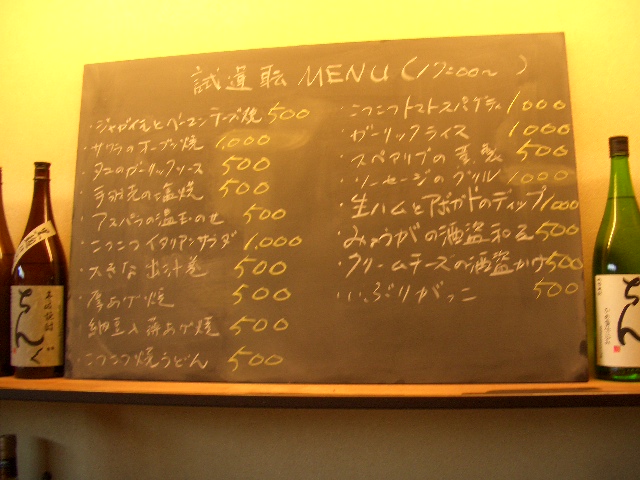 試運転 MENU (17:00〜 )
・ジャガイモとベーコンチーズ焼 500
・サワラのオーブン焼 1,000
・タコのガーリックソース 500
・手羽先の塩焼 500
・アスパラの温玉のせ 500
・こつこつイタリアンサラダ 1,000
・大きな出汁巻 500
・厚あげ焼 500
・納豆入薄あげ焼 500
・こつこつ焼うどん 500
・こつこつトマトスパゲティ 1000
・ガーリックライス 1000
・スペアリブの 500
・ソーセージのグリル 1000
・生ハムとアボガドのディップ 1000
・みょうがの酒盗和え 500
・クリームチーズの酒盗かけ 500
・いぶりがっこ 500
ちんぐ
ちんぐ